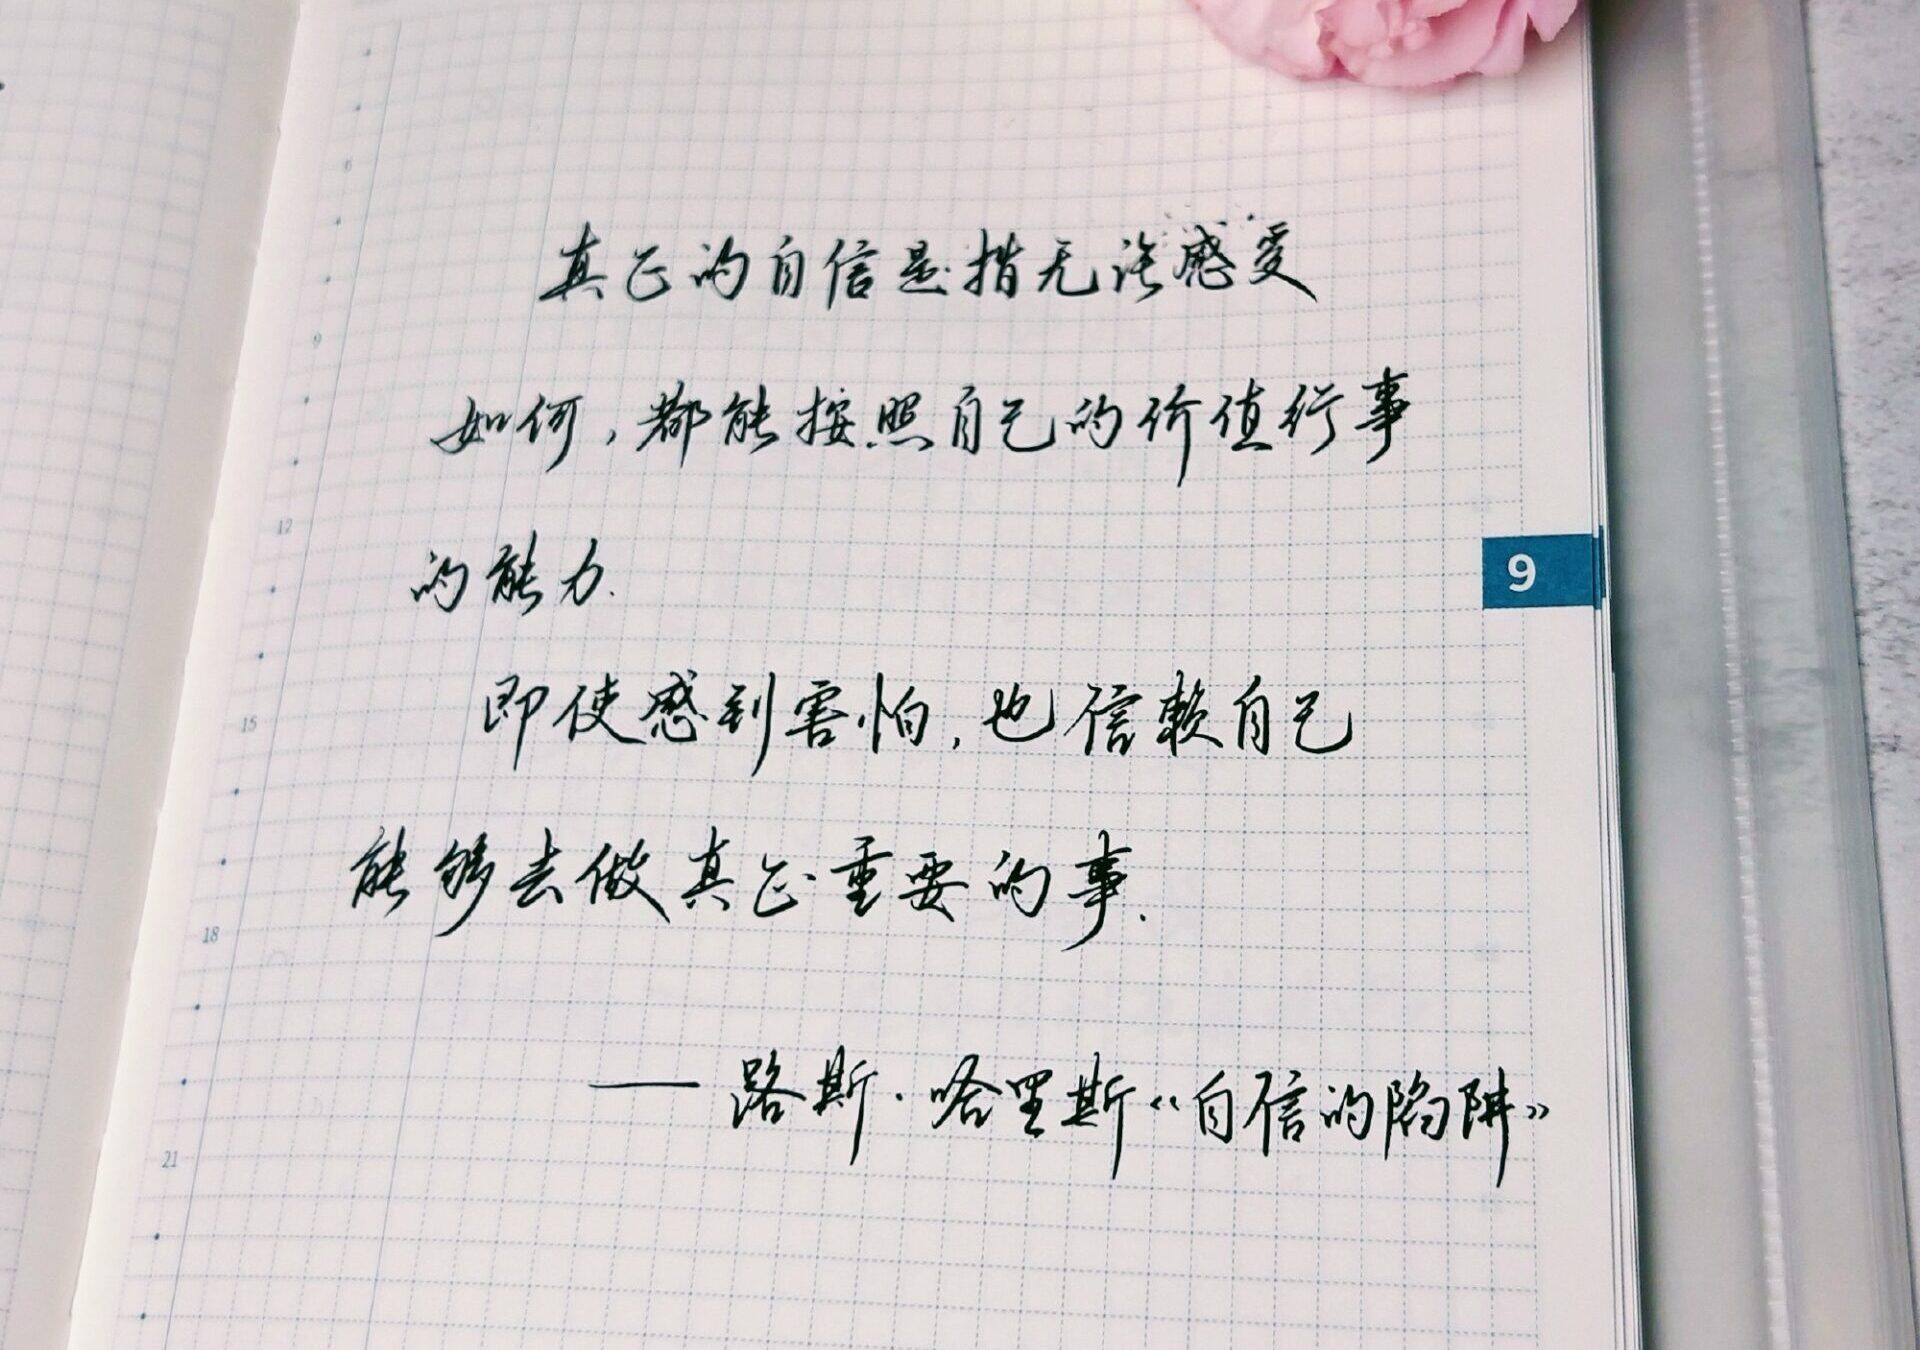 真正的自信是指无论感受
如何，都能按照自己的价值行事
的能力.
即使感到害怕，也信赖自己
能够去做真正重要的事.
——路斯·哈里斯《自信的陷阱》
6
9
12
15
18
21
9